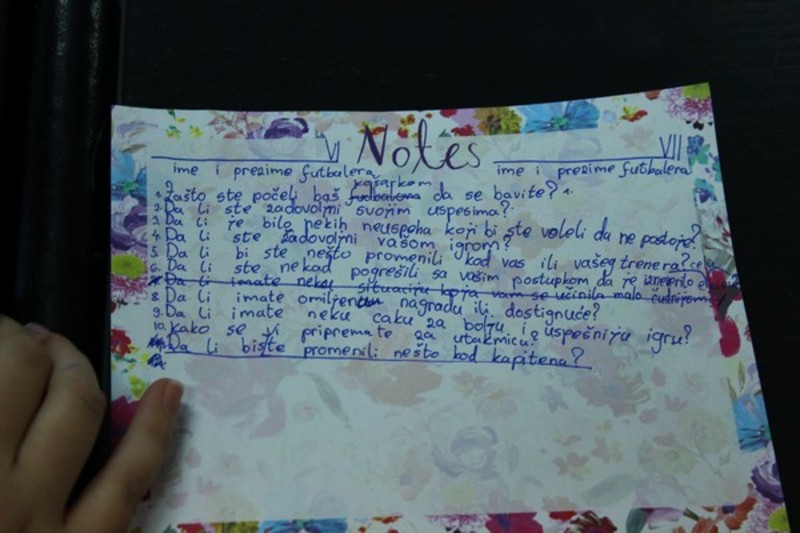 VI Notes VII
ime i prezime futbalera ime i prezime futbalera
košarkom
1. Zašto ste počeli baš futbalom da se bavite?
2. Da li ste zadovoljni svojim uspesima?
3. Da li je bilo nekih neuspeha koji bi ste voleli da ne postoje?
4. Da li ste zadovoljni vašom igrom?
5. Da li bi ste nešto promenili kod vas ili vašeg trenera?
6. Da li ste nekad pogrešili sa vašim postupkom da je
7. Da li imate neku situaciju koja vam se učinila malo čudnijom?
8. Da li imate omiljenu nagradu ili dostignuće?
9. Da li imate neku caku za bolju i uspešniju igru?
10. Kako se vi pripremate za utakmicu?
Da li biste promenili nešto kod kapitena?